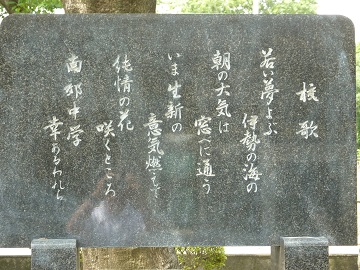 校歌
若い夢よぶ
伊勢の海の
朝の大気は
窓べに通う
いま生新の
意気燃えて
純情の花
咲くところ
南郊中学
幸あるわれら